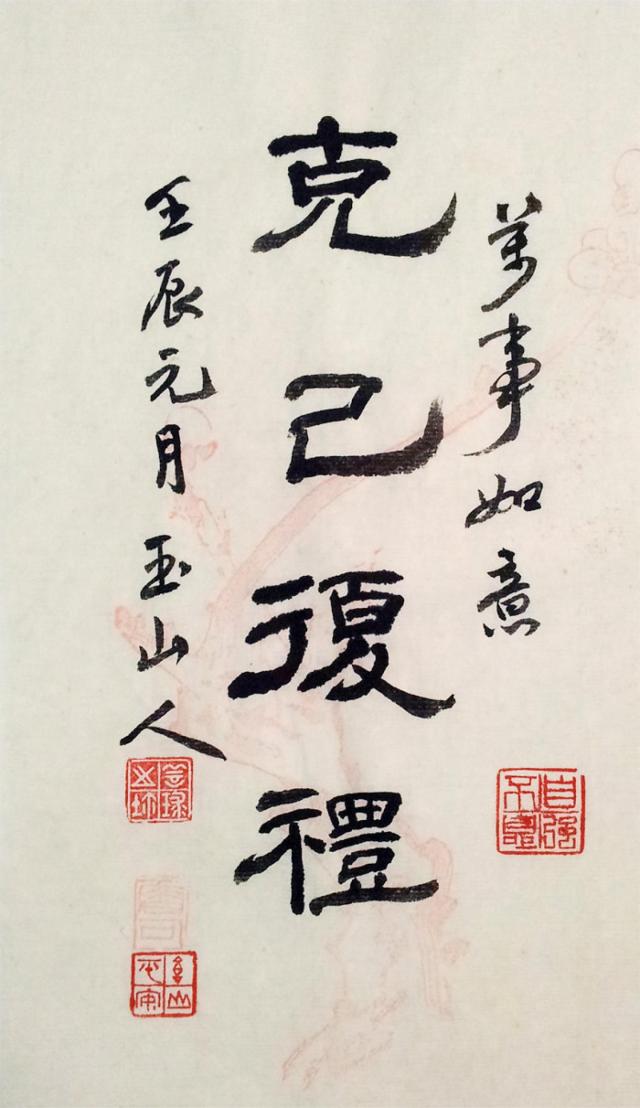 萬事如意
自强不息
克己復禮
壬辰元月 玉山人